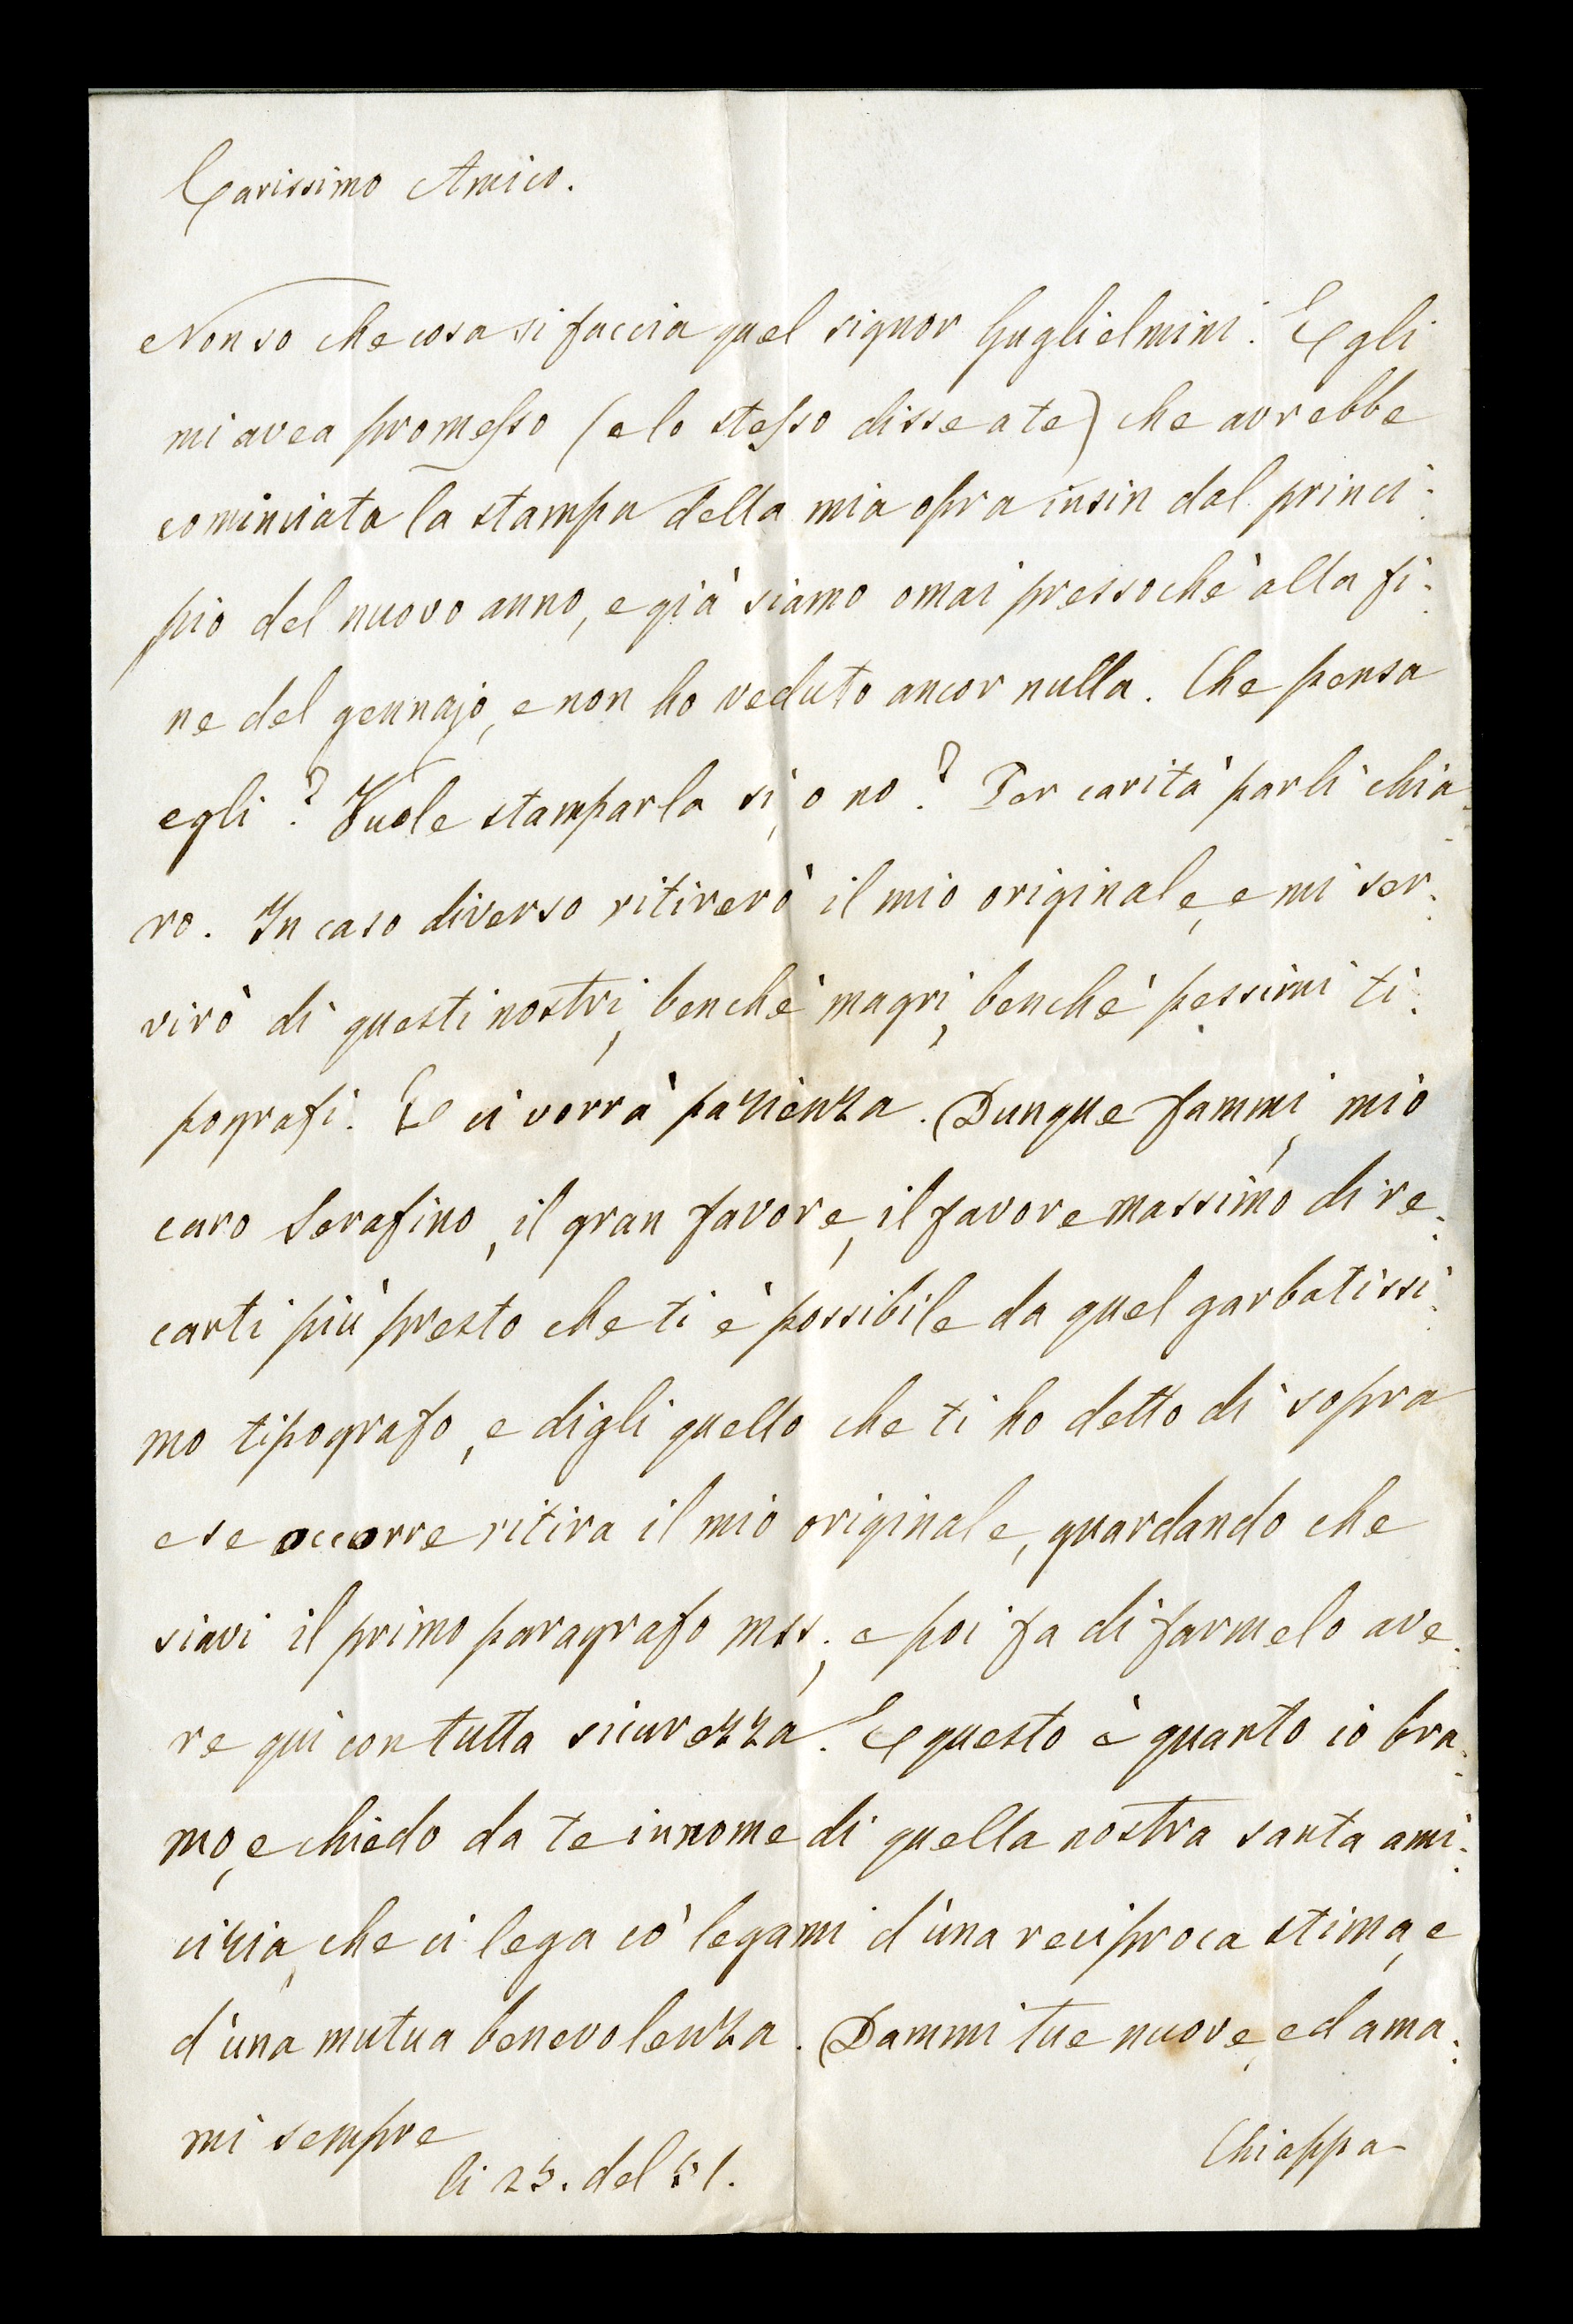 Carissimo Amico.
Non so che cosa si faccia quel signor Guglielmini. Egli
mi avea promesso (e lo stesso disse a te) che avrebbe
cominciata la stampa della mia opra insin dal princi:
pio del nuovo anno, e già siamo omai pressochè alla fi:
ne del gennajo, e non ho veduto ancor nulla. Che pensa
egli? Vuole stamparla si, o no? Per carità parli chia:
ro. In caso diverso ritirerò il mio originale, e mi ser:
virò di questi nostri, benchè magri, benchè pessimi ti:
pografi. E ci vorrà pazienza. Dunque fammi, mio
caro Serafino, il gran favore, il favore massimo di re:
carti più presto che ti è possibile da quel garbatissi:
mo tipografo, e digli quello che ti ho detto di sopra
e se occorre ritira il mio originale, guardando che
siavi il primo paragrafo mss.; e poi fa di farmelo ave:
re qui con tutta sicurezza. E questo è quanto io bra:
mo, e chiedo da te in nome di quella nostra santa ami:
cizia, che ci lega co' legami d'una reciproca stima, e
d'una mutua benevolenza. Dammi tue nuove, ed ama:
mi sempre
Chiappa
li 25. del 51.